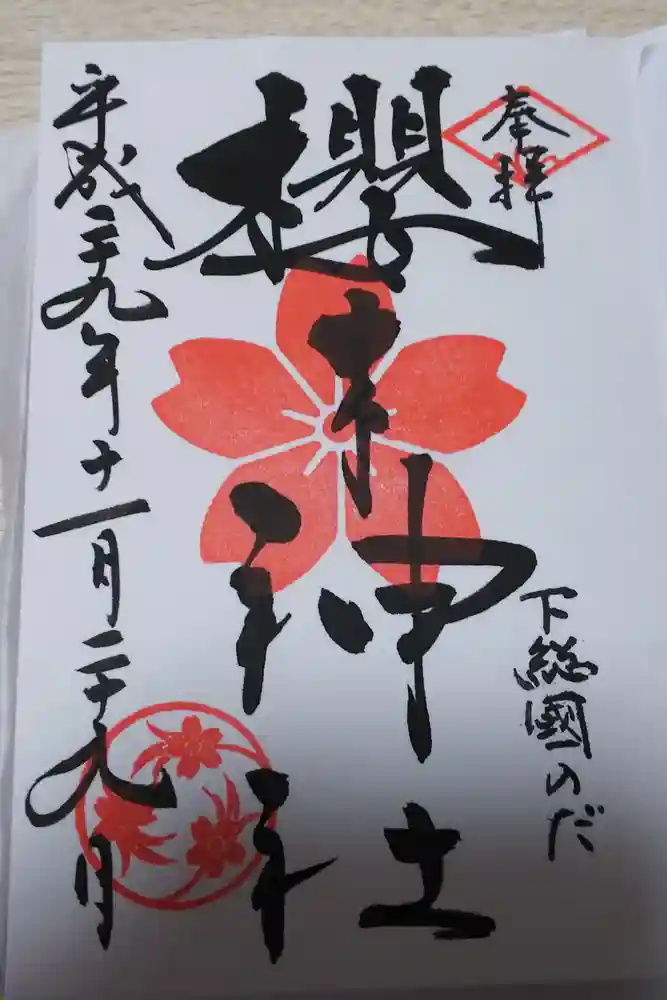 奉拝
下総國のだ
櫻木神社
平成二十九年十一月二十九日